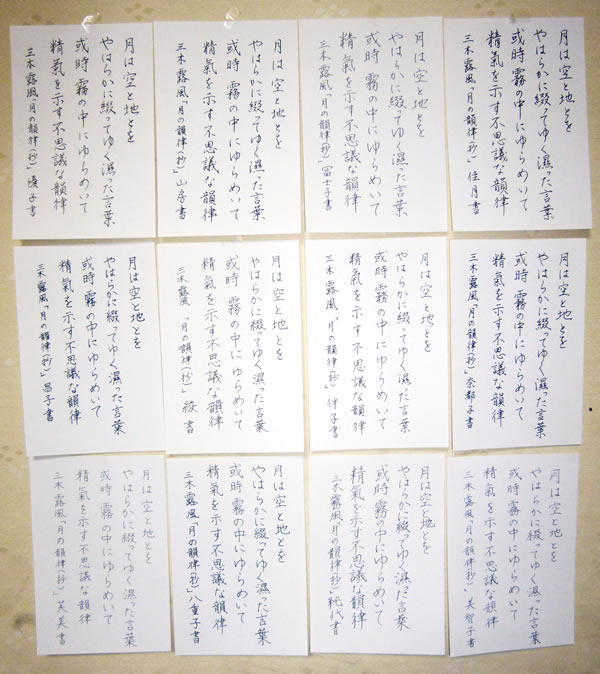 月は空と地とを
やはらかに綴ってゆく濕った言葉
或時 霧の中にゆらめいて
精氣を示す不思議な韻律
三木露風「月の韻律(抄)」佳月書
月は空と地とを
やはらかに綴ってゆく濕った言葉
或時 霧の中にゆらめいて
精氣を示す不思議な韻律
三木露風「月の韻律(抄)」富士子書
月は空と地とを
やはらかに綴ってゆく濕った言葉
或時 霧の中にゆらめいて
精氣を示す不思議な韻律
三木露風「月の韻律(抄)」山房書
月は空と地とを
やはらかに綴ってゆく濕った言葉
或時 霧の中にゆらめいて
精氣を示す不思議な韻律
三木露風「月の韻律(抄)」優子書
月は空と地とを
やはらかに綴ってゆく濕った言葉
或時 霧の中にゆらめいて
精氣を示す不思議な韻律
三木露風「月の韻律(抄)」奈都子書
月は空と地とを
やはらかに綴ってゆく濕った言葉
或時 霧の中にゆらめいて
精氣を示す不思議な韻律
三木露風「月の韻律(抄)」
月は空と地とを
やはらかに綴ってゆく濕った言葉
或時 霧の中にゆらめいて
精氣を示す不思議な韻律
三木露風「月の韻律(抄)」綾書
月は空と地とを
やはらかに綴ってゆく濕った言葉
或時 霧の中にゆらめいて
精氣を示す不思議な韻律
三木露風「月の韻律(抄)」昌子書
月は空と地とを
やはらかに綴ってゆく濕った言葉
或時 霧の中にゆらめいて
精氣を示す不思議な韻律
三木露風「月の韻律(抄)」美智子書
月は空と地とを
やはらかに綴ってゆく濕った言葉
或時 霧の中にゆらめいて
精氣を示す不思議な韻律
三木露風「月の韻律(抄)」純代書
月は空と地とを
やはらかに綴ってゆく濕った言葉
或時 霧の中にゆらめいて
精氣を示す不思議な韻律
三木露風「月の韻律(抄)」八重子書
月は空と地とを
やはらかに綴ってゆく濕った言葉
或時 霧の中にゆらめいて
精氣を示す不思議な韻律
三木露風「月の韻律(抄)」芙美書